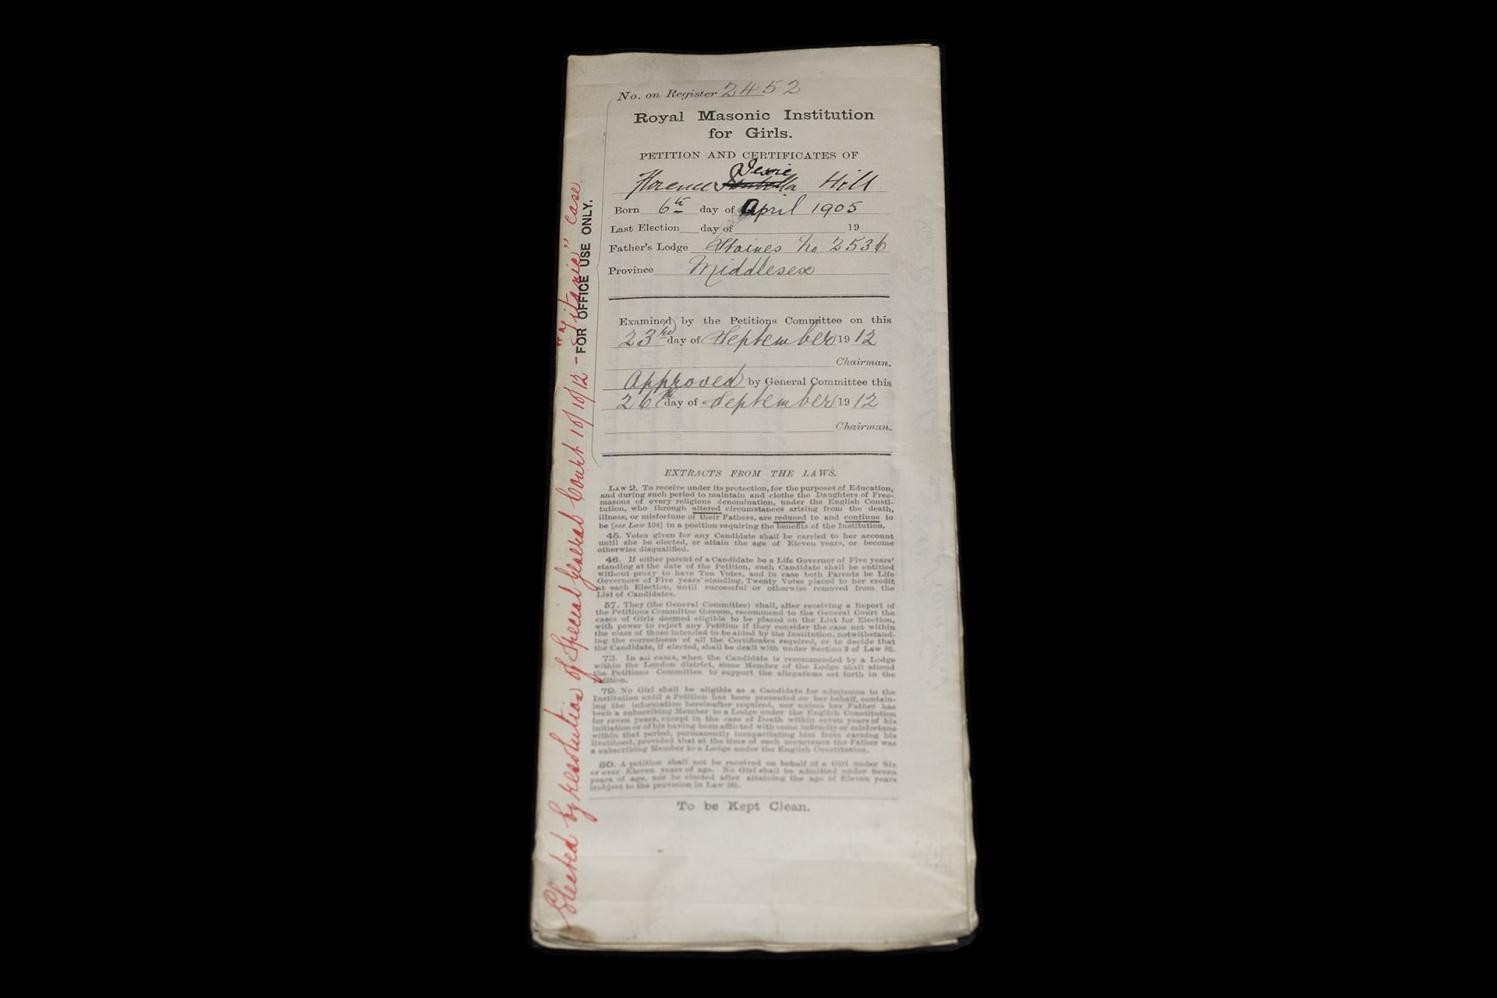 No. on Register 2452
Royal Masonic Institution
for Girls.
PETITION AND CERTIFICATES OF
Jessie
Florence Hill
Born 6th day of April 1905
Last Election day of 19
Father's Lodge Staines No 2536
Province Middlesex
Examined by the Petitions Committee on this
23rd day of September 1912
Chairman.
Approved by General Committee this
26th day of September 1912
Chairman.
EXTRACTS FROM THE LAWS.
LAW 2. To receive under its protection, for the purposes of Education,
and during such period to maintain and clothe the Daughters of Free-
masons of every religious denomination, under the English Consti-
tution, who through altered circumstances arising from the death,
illness, or misfortune of their Fathers, are reduced to and continue to
be [see Law 104] in a position requiring the benefits of the Institution.
45. Votes given for any Candidate shall be carried to her account
until she be elected, or attain the age of Eleven years, or become
otherwise disqualified.
46. If either parent of a Candidate be a Life Governor of Five years'
standing at the date of the Petition, such Candidate shall be entitled
without proxy to have Ten Votes, and in case both Parents be Life
Governors of Five years' standing, Twenty Votes placed to her credit
at each Election, until successful or otherwise removed from the
List of Candidates.
57. They (the General Committee) shall, after receiving a Report of
the Petitions Committee thereon, recommend to the General Court the
cases of Girls deemed eligible to be placed on the List for Election,
with power to reject any Petition if they consider the case not within
the class of those intended to be aided by the Institution, notwithstand-
ing the correctness of all the Certificates required, or to decide that
the Candidate, if elected, shall be dealt with under Section 2 of Law 85.
73. In all cases, when the Candidate is recommended by a Lodge
within the London district, some Member of the Lodge shall attend
the Petitions Committee to support the allegations set forth in the
Petition.
79. No Girl shall be eligible as a Candidate for admission to the
Institution until a Petition has been presented on her behalf, contain-
ing the information hereinafter required, nor unless her Father has
been a subscribing Member to a Lodge under the English Constitution
for seven years, except in the case of Death within seven years of his
initiation or of his having been afflicted with some infirmity or misfortune
within that period, permanently incapacitating him from earning his
livelihood, provided that at the time of such occurrence the Father was
a subscribing Member to a Lodge under the English Constitution.
80. A petition shall not be received on behalf of a Girl under Six
or over Eleven years of age. No Girl shall be admitted under Seven
years of age, nor be elected after attaining the age of Eleven years
(subject to the provision in Law
To be Kept Clean.
FOR OFFICE USE ONLY.
Elected by resolution of Special General Court 10/10/12 - "Titanic" case.